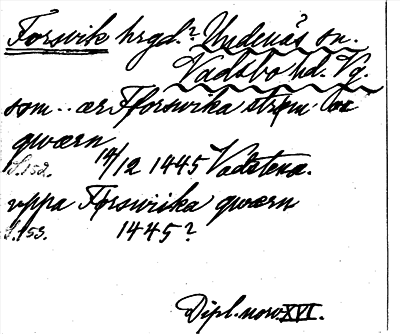 Forsvik hrgd.? Undenäs sn.
Vadsbo hd. Vg.
som .. ær Fforswika strøm oc
qwærn
S. 152. 14/12 1445 Vadstena.
uppa Forswika qwærn
S. 153. 1445?
Dipl. norv. XVI.